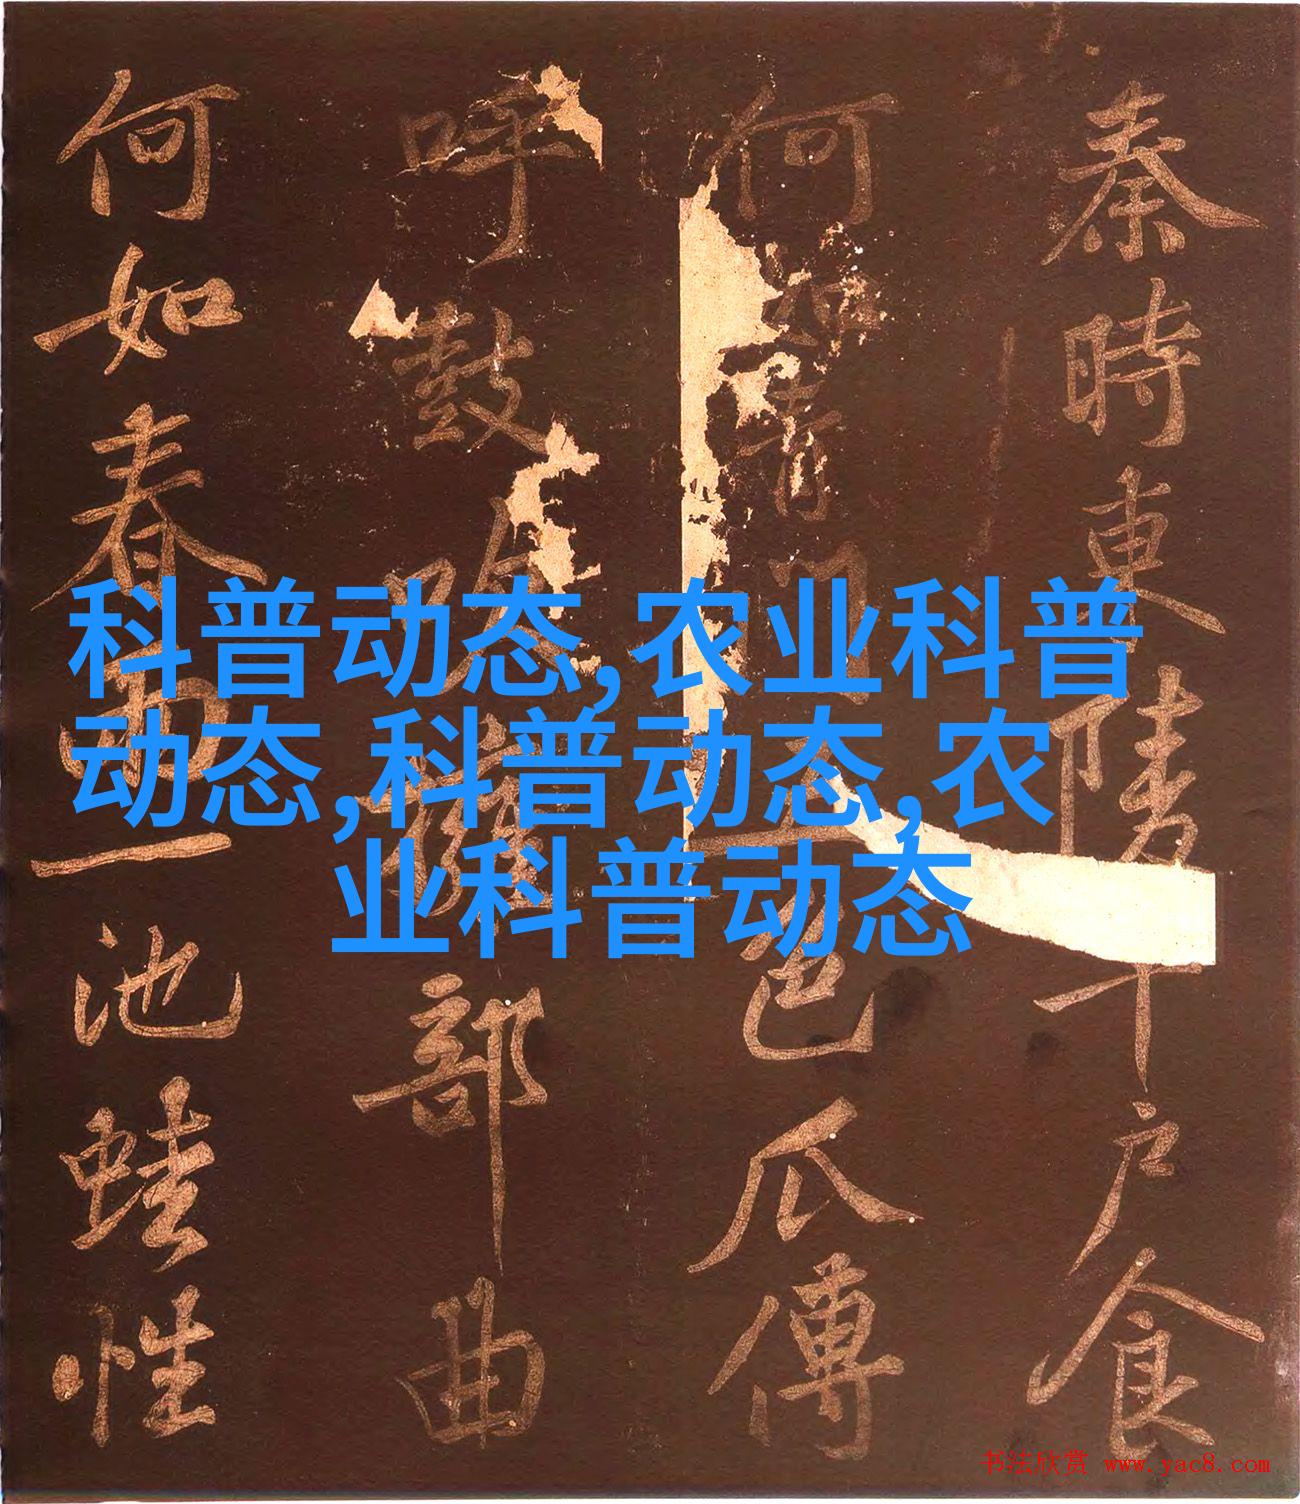 秦時東陵千戶食
何如青門五色瓜傳
呼鼓吹部曲
何如春雨一池蛙性
科普动态,农业科普
动态,科普动态,农
业科普动态
书法欣赏 www.yac8.com